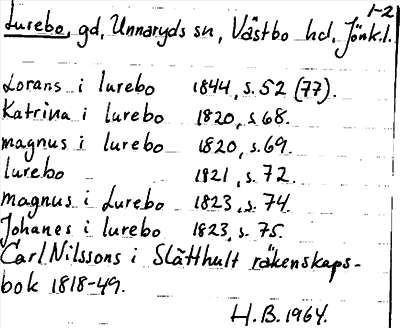 1-2
Lurebo, gd, Unnaryds sn, Västbo hd, Jönk.l.
Lorans i lurebo 1844, s. 52 (77).
Katrina i lurebo 1820, s. 68.
magnus i lurebo 1820, s. 69.
lurebo 1821, s. 72.
magnus i Lurebo 1823, s. 74.
Johanes i lurebo 1823, s. 75.
Carl Nilssons i Slätthult räkenskaps-
bok 1818-49.
H.B. 1964.